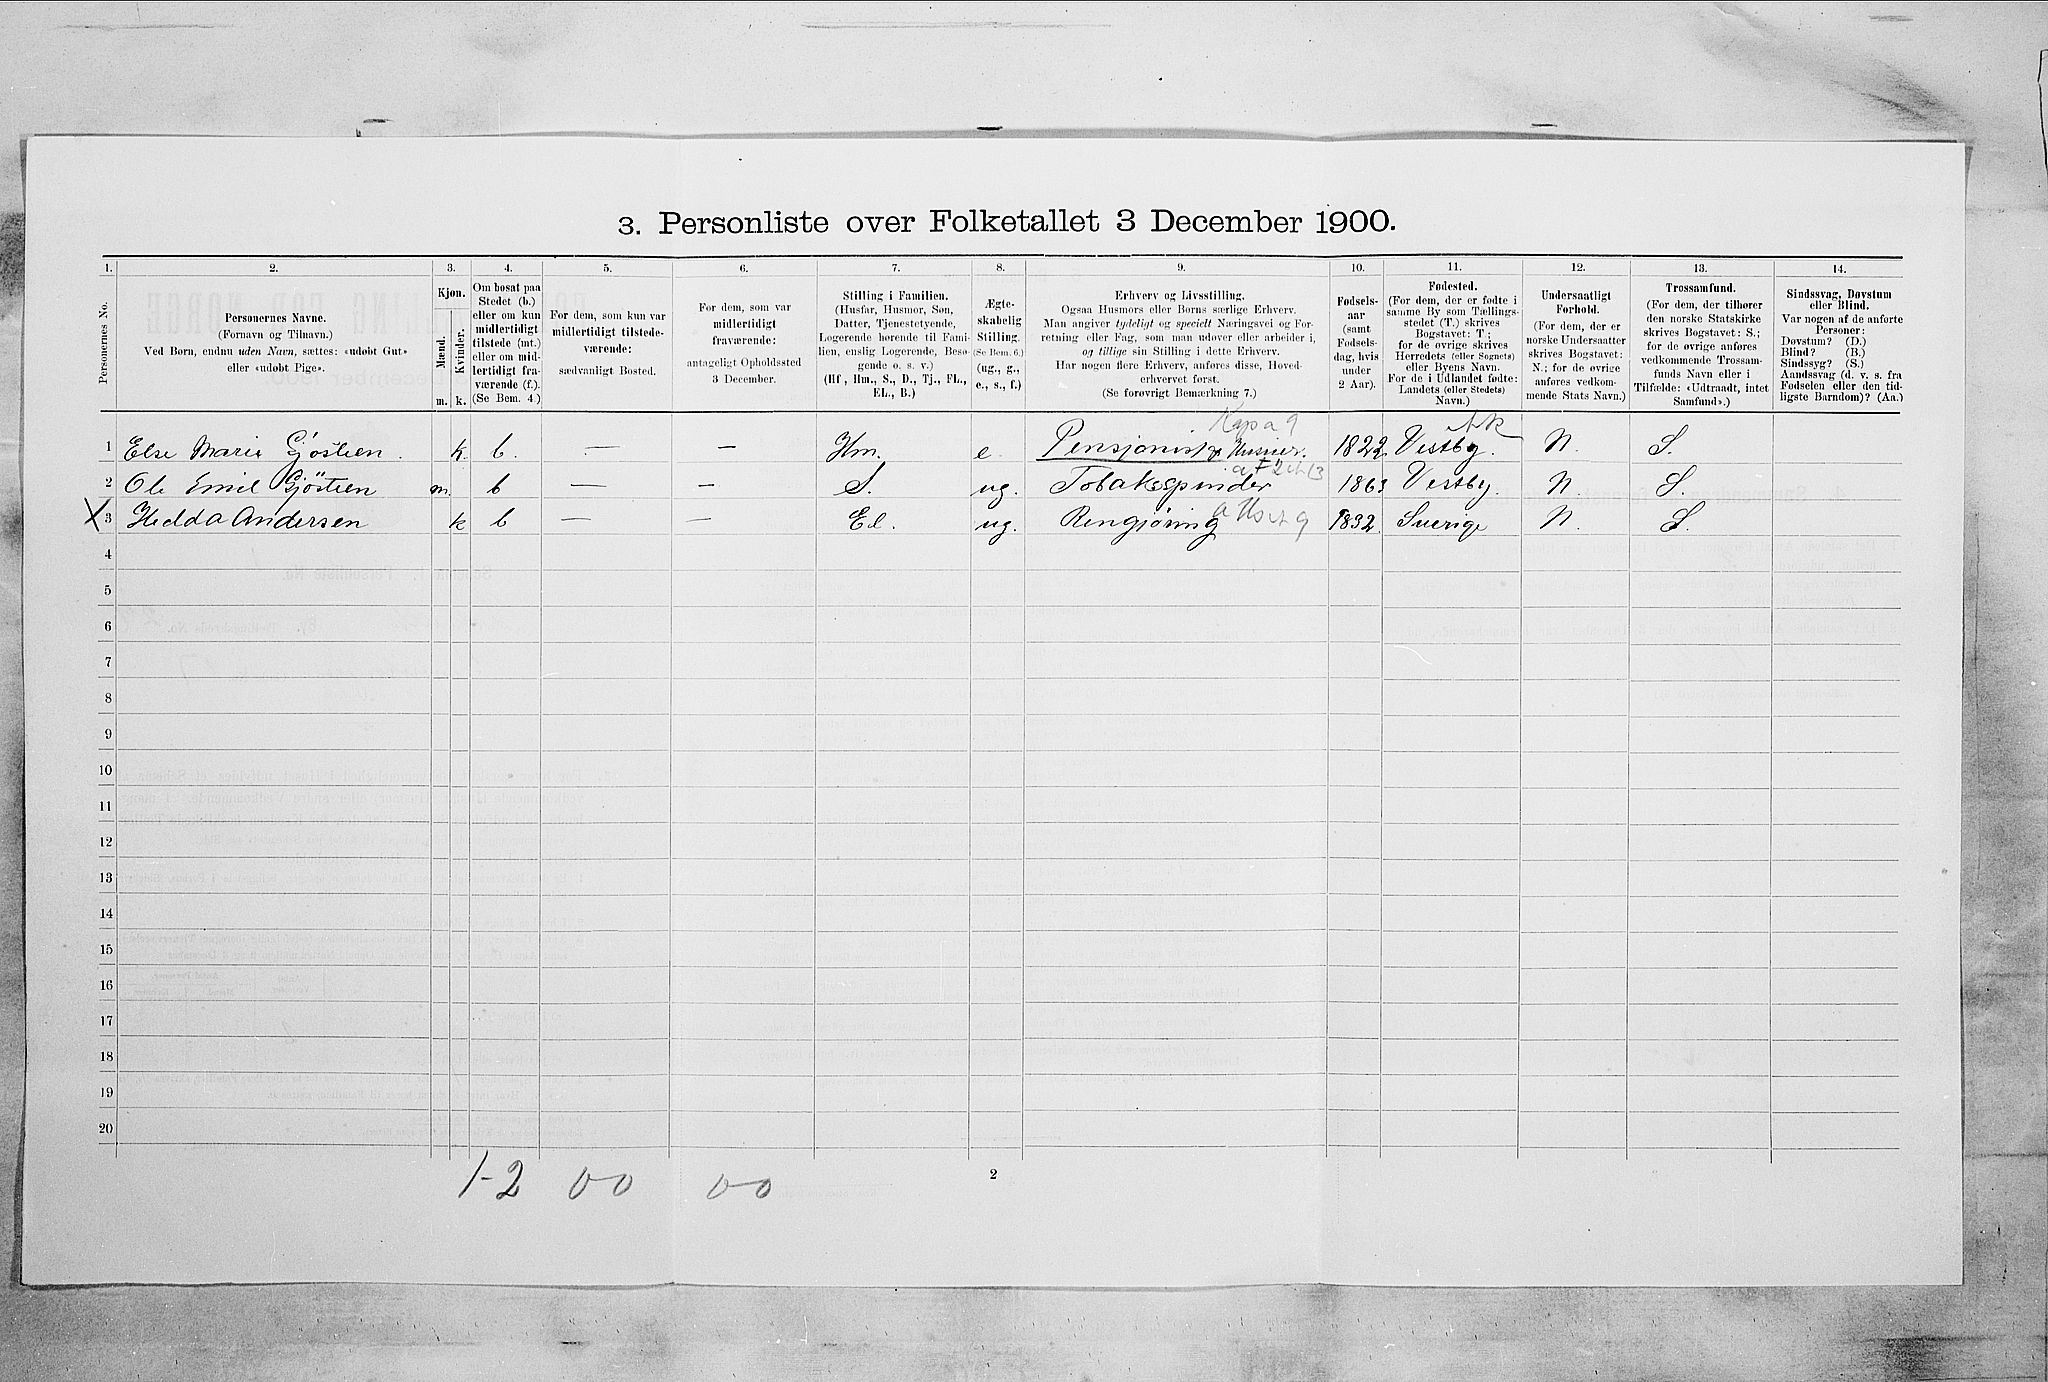 3. Personliste over Folketallet 3 December 1900.
1. 2. 3. 4. 5. 6. 7. 8. 9. 10. 11. 12. 13. 14.
Personernes No.
Personernes Navne.
(Fornavn og Tilnavn.)
Ved Børn, endnu uden Navn, sættes: «udøbt Gut»
eller «udøbt Pige».
Kjøn.
Mænd.
Kvinder.
m. k.
Om bosat paa
Stedet (b.)
eller om kun
midlertidigt
tilstede (mt.)
eller om mid-
lertidigt fra-
værende (f.).
(Se Bem. 4.)
For dem, som kun var
midlertidigt tilstede-
værende:
sædvanligt Bosted.
For dem, som var
midlertidigt
fraværende:
antageligt Opholdssted
3 December.
Stilling i Familien.
(Husfar, Husmor, Søn,
Datter, Tjenestetyende,
Logerende hørende til Fami-
lien, enslig Logerende, Besø-
gende o. s. v.)
(Hf, Hm., S., D., Tj., FL.,
EL., B.)
Ægte-
skabelig
Stilling.
(Se Bem. 6.)
(ug., g.,
e., s., f.)
Erhverv og Livsstilling.
Ogsaa Husmors eller Børns særlige Erhverv.
Man angiver tydeligt og specielt Næringsvei og For-
retning eller Fag, som man udøver eller arbeider i,
og tillige sin Stilling i dette Erhverv.
Har nogen flere Erhverv, anføres disse, Hoved-
erhvervet først.
(Se forøvrigt Bemærkning 7.)
Fødsels-
aar
(samt
Fødsels-
dag, hvis
under
2 Aar).
Fødested.
(For dem, der er fødte i
samme By som Tællings-
stedet (T.) skrives
Bogstavet: T;
for de øvrige skrives
Herredets (eller Sognets)
eller Byens Navn.
For de i Udlandet fødte:
Landets (eller Stedets)
Navn.)
Undersaatligt
Forhold.
(For dem, der er
norske Undersaatter
skrives Bogstavet:
N.; for de øvrige
anføres vedkom-
mende Stats Navn.)
Trossamfund.
(For dem, der tilhører
den norske Statskirke
skrives Bogstavet: S.;
for de øvrige anføres
vedkommende Trossam-
funds Navn eller i
Tilfælde: «Udtraadt, intet
Samfund».)
Sindssvag, Døvstum
eller Blind.
Var nogen af de anførte
Personer:
Døvstum? (D.)
Blind? (B.)
Sindssyg? (S.)
Aandssvag (d. v. s. fra
Fødselen eller den tid-
ligste Barndom)? (Aa.)
1 Else Marie Gjøstien. k. b. — — Hm. e. Pensjonist 1822 Vestby. N. S.
2 Ole Emil Gjøstien m. b — — S. ug. Tobaksspinder 1863 Vestby. N. S.
X 3 Hedda Andersen k b — — El. ug. Rengjøring 1832. Sverige N. S.
4
5
6
7
8
9
10
11
12
13
14
15
16
17
18
19
20
1-2 0-0 0-0
2